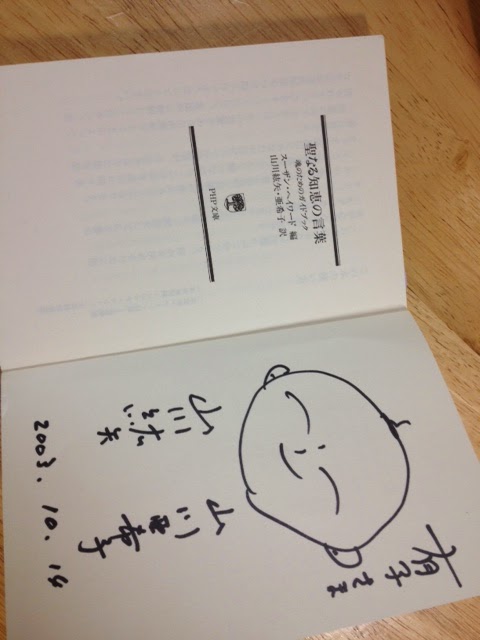 聖なる知恵の言葉
魂のためのガイドブック
スーザン・ヘイワード 編
山川紘矢・亜希子 訳
PHP文庫
有子さま
山川亜希子
山川紘矢
2003. 10. 19